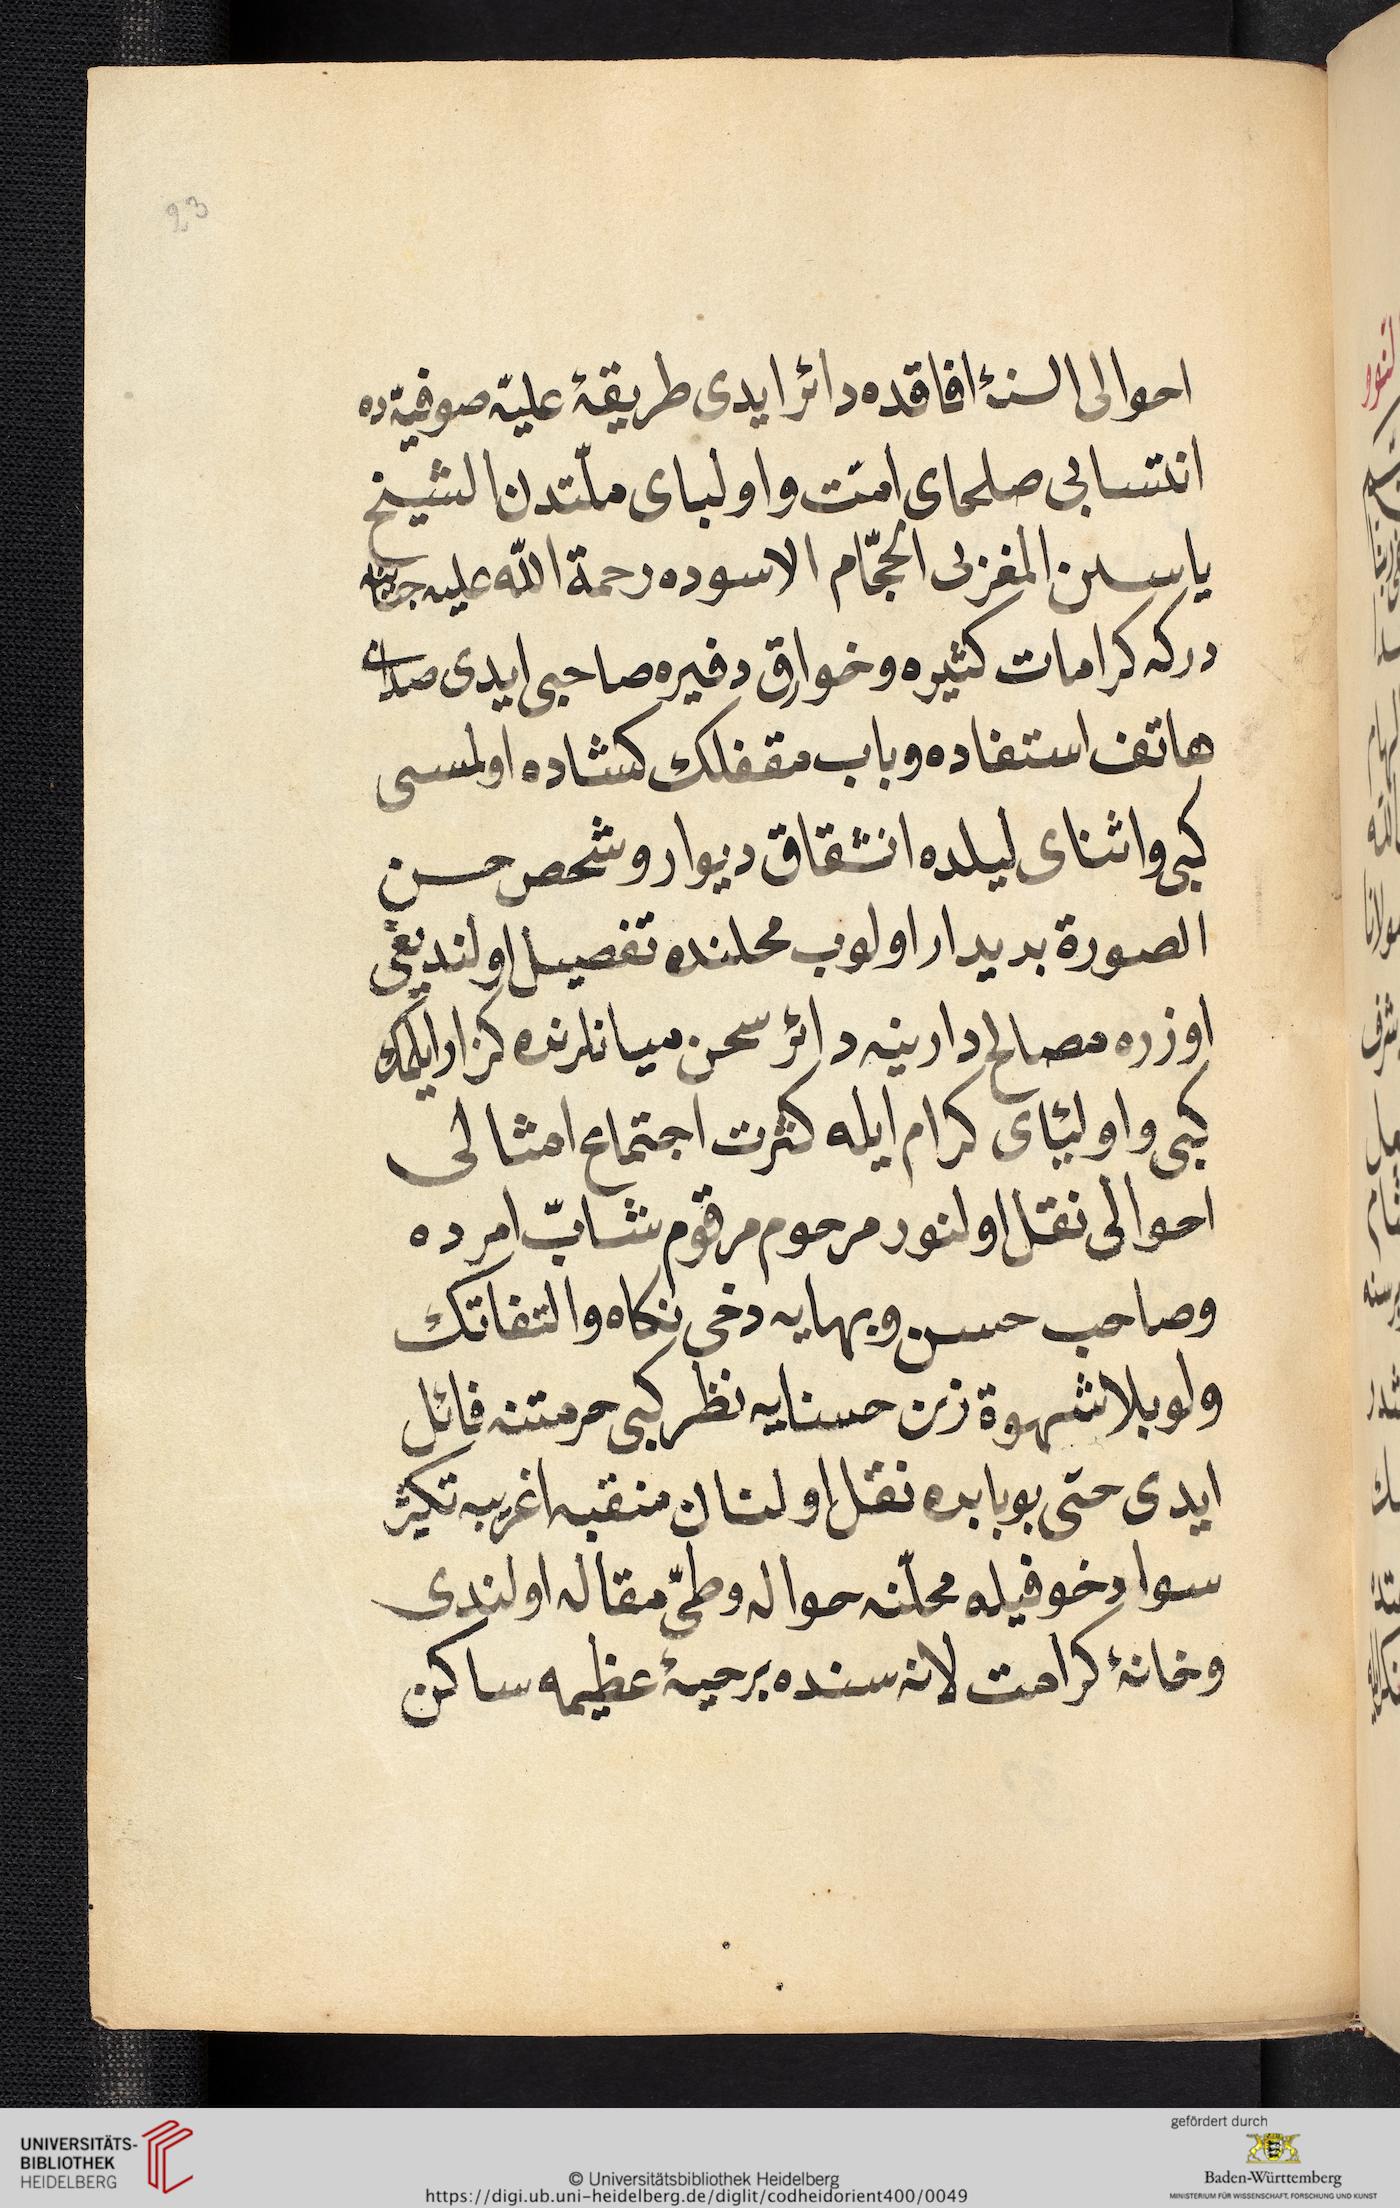 23
احوالی السنۀ افاقده دائر ایدی طریقۀ علیّه صوفیّه ده
انتسابی صلحای امّت واولیای ملّتدن الشیخ
یاسین المغربی الحجّام الاسوده رحمة اللّه علیه
درکه کرامات کثیره وخوارق دفیره صاحبی ایدی صدای
هاتف استفاده وباب مقفلك کشاده اولمسی
کبی واثنای لیلده انشقاق دیوار وشخص حسن
الصورة بدیدار اولوب محلنده تفصیل اولندیغی
اوزره مصالح دارینه دائر سخن میانلرنده کزار ایلمك
کبی واولیای کرام ایله کثرت اجتماع امثالی
احوالی نقل اولنور مرحوم مرقوم شابّ امرده
وصاحب حسن وبهایه دخی نکاه والتفاتك
ولو بلا شهوة زن حسنایه نظر کبی حرمتنه قائل
ایدی حتّی بو بابده نقل اولنان منقبه اغربیه تکثیر
سواد خوفیله محلّنه حواله وطیّ مقاله اولندی
وخانۀ کرامت لانه سنده بر حیۀ عظیمه ساکن
UNIVERSITÄTS-
BIBLIOTHEK
HEIDELBERG
© Universitätsbibliothek Heidelberg
https://digi.ub.uni-heidelberg.de/diglit/codheidorient400/0049
gefördert durch
Baden-Württemberg
MINISTERIUM FÜR WISSENSCHAFT, FORSCHUNG UND KUNST